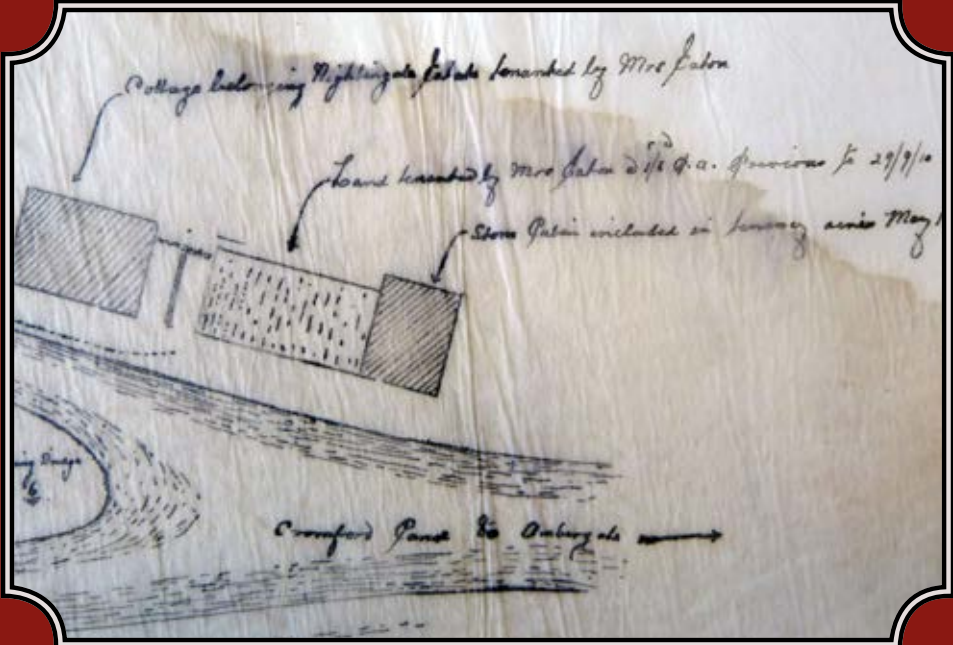 Cottage belonging Nightingale Estate tenanted by Mrs Eaton
Land tenanted by Mrs Eaton @ 1/- p.a. previous to 29/9/10
Stone Cabin included in tenancy since May 1
ing Bridge
6
Cromford Canal to Ambergate